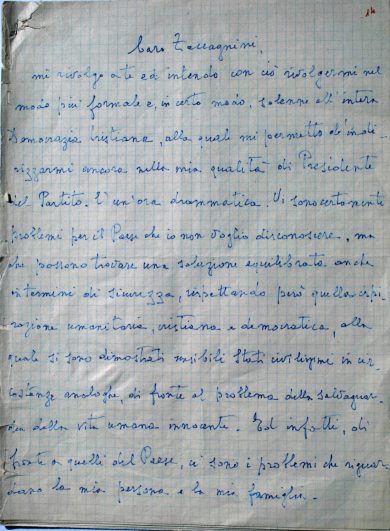 14
Caro Zaccagnini,
mi rivolgo a te ed intendo con ciò rivolgermi nel
modo più formale e, in certo modo, solenne all'intera
Democrazia Cristiana, alla quale mi permetto di indi
rizzarmi ancora nella mia qualità di Presidente
del Partito. È un'ora drammatica. Vi sono certamente
problemi per il Paese che io non voglio disconoscere, ma
che possono trovare una soluzione equilibrata anche
in termini di sicurezza, rispettando però quella ispi
razione umanitaria, cristiana e democratica, alla
quale si sono dimostrati sensibili Stati civilissimi in cir
costanze analoghe, di fronte al problema della salvaguar
dia della vita umana innocente. Ed infatti, di
fronte a quelli del Paese, ci sono i problemi che riguar
dano la mia persona e la mia famiglia.